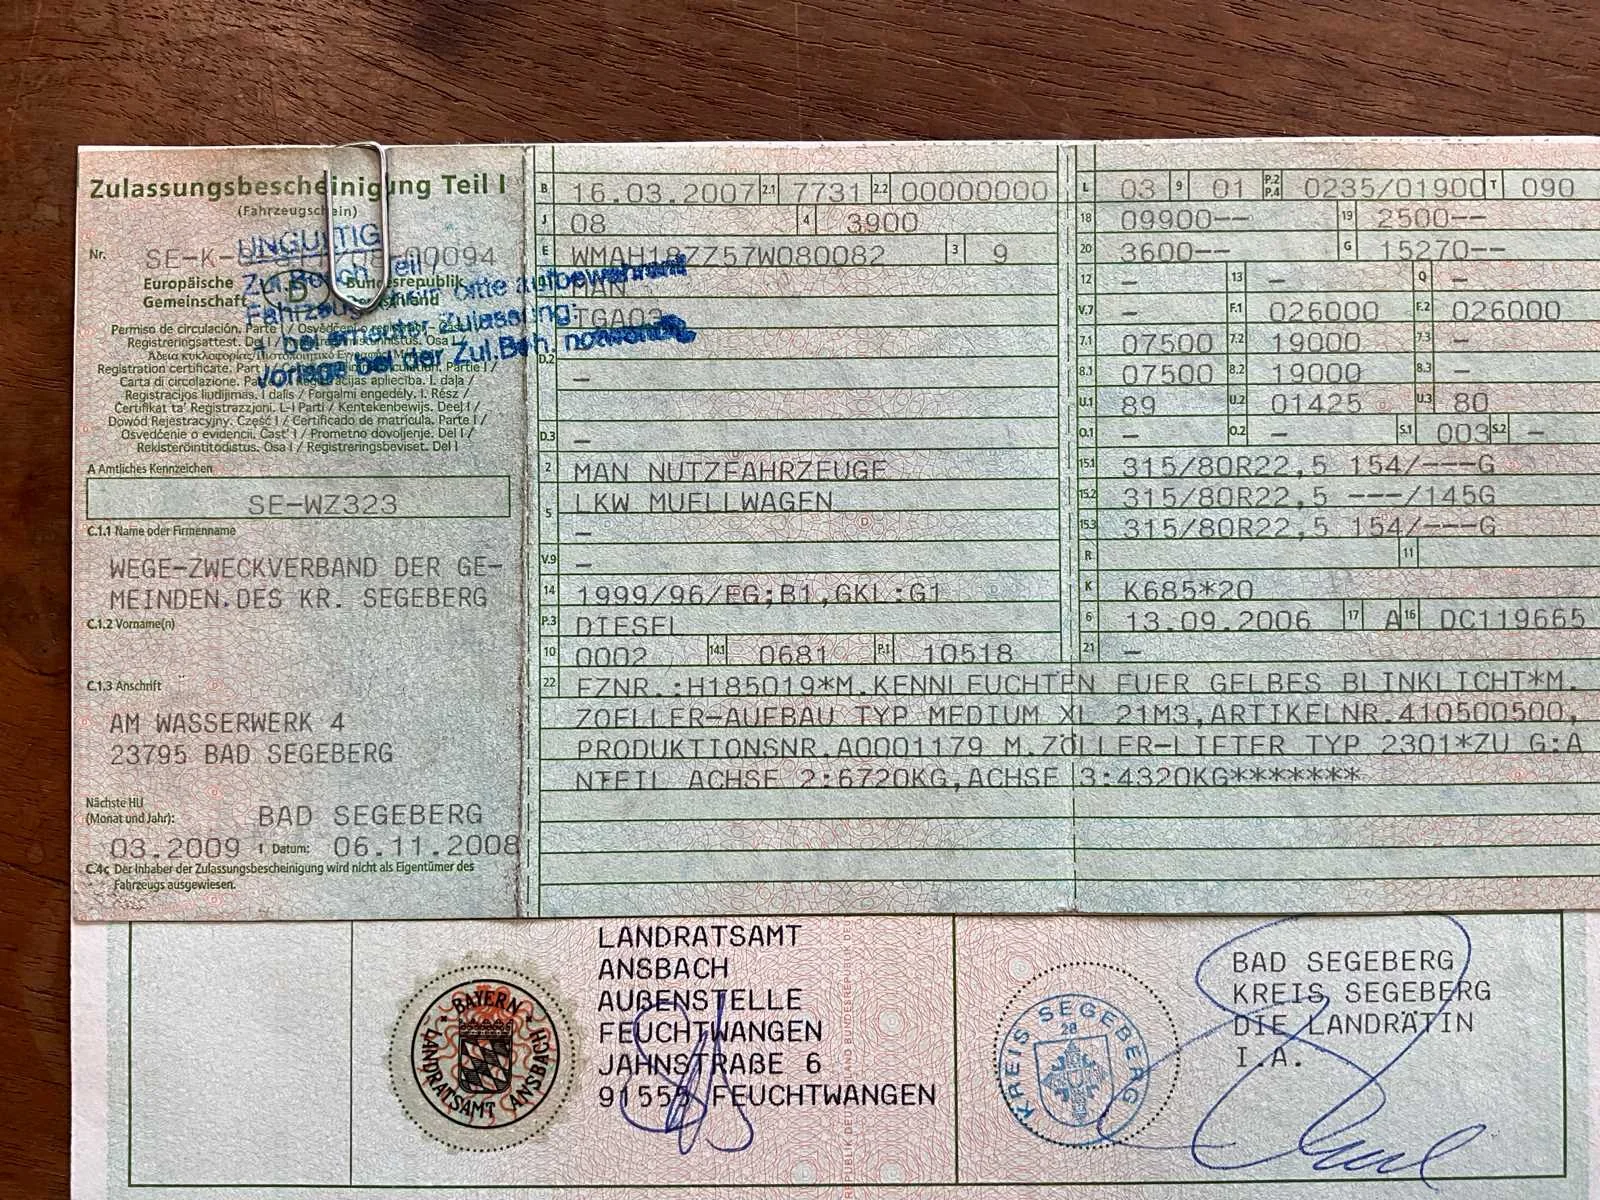 Zulassungsbescheinigung Teil I
(Fahrzeugschein)
Nr. SE-K- 00094
UNGÜLTIG
Europäische Gemeinschaft
D
Bundesrepublik Deutschland
Zul.Besch. Teil
Fahrzeugschein bitte aufbewahren
bei erneuter Zulassung:
Vorlage bei der Zul.Beh. notwendig
Permiso de circulación. Parte I / Osvědčení o registraci – Část I /
Registreringsattest. Del I /
Άδεια κυκλοφορίας/Πιστοποιητικό Εγγραφής
Registration certificate. Part I / Partie I /
Carta di circolazione. Parte I / Reģistrācijas apliecība. I. daļa /
Registracijos liudijimas. I dalis / Forgalmi engedély. I. Rész /
Ċertifikat ta' Reġistrazzjoni. L-I Parti / Kentekenbewijs. Deel I /
Dowód Rejestracyjny. Część I / Certificado de matrícula. Parte I /
Osvedčenie o evidencii. Časť I / Prometno dovoljenje. Del I /
Rekisteröintitodistus. Osa I / Registreringsbeviset. Del I
A Amtliches Kennzeichen
SE-WZ323
C.1.1 Name oder Firmenname
WEGE-ZWECKVERBAND DER GE-
MEINDEN.DES KR. SEGEBERG
C.1.2 Vorname(n)
C.1.3 Anschrift
AM WASSERWERK 4
23795 BAD SEGEBERG
Nächste HU
(Monat und Jahr): BAD SEGEBERG
03.2009 I Datum: 06.11.2008
C.4c Der Inhaber der Zulassungsbescheinigung wird nicht als Eigentümer des
Fahrzeugs ausgewiesen.
B 16.03.2007 2.1 7731 2.2 00000000
J 08 4 3900
E WMAH18ZZ57W080082 3 9
MAN
TGA03
D.2 –
D.3 –
2 MAN NUTZFAHRZEUGE
5 LKW MUELLWAGEN
–
V.9 –
14 1999/96/EG;B1,GKL:G1
P.3 DIESEL
10 0002 14.1 0681 P.1 10518
L 03 9 01 P.2 P.4 0235/01900 T 090
18 09900-- 19 2500--
20 3600-- G 15270--
12 – 13 – Q –
V.7 – F.1 026000 F.2 026000
7.1 07500 7.2 19000 7.3 –
8.1 07500 8.2 19000 8.3 –
U.1 89 U.2 01425 U.3 80
O.1 – O.2 – S.1 003 S.2 –
15.1 315/80R22,5 154/---G
15.2 315/80R22,5 ---/145G
15.3 315/80R22,5 154/---G
R 11
K K685*20
6 13.09.2006 17 A 16 DC119665
21 –
22 FZNR.:H185019*M.KENNLEUCHTEN FUER GELBES BLINKLICHT*M.
ZOELLER-AUFBAU TYP MEDIUM XL 21M3,ARTIKELNR.410500500,
PRODUKTIONSNR.A0001179 M.ZÖLLER-LIFTER TYP 2301*ZU G:A
NTEIL ACHSE 2:6720KG,ACHSE 3:4320KG*******
BAYERN
LANDRATSAMT ANSBACH
LANDRATSAMT
ANSBACH
AUßENSTELLE
FEUCHTWANGEN
JAHNSTRAßE 6
91555 FEUCHTWANGEN
KREIS SEGEBERG
28
BAD SEGEBERG
KREIS SEGEBERG
DIE LANDRÄTIN
I.A.